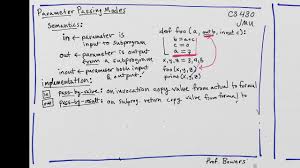 Parameter Passing Modes
CS 430
JMU
Semantics:
in ← parameter is
input to subprogram
out ← parameter is output
from a subprogram
inout ← parameter both
input and output
def foo (a, out b, inout c):
b = a+c
c = 0
a = 7
x, y, z = 3, 9, 6
foo(x, y, z)
print(x, y, z)
Implementation:
in pass-by-value: on invocation copy value from actual to formal
out pass-by-result: on subprog. return copy value from formal to
Prof. Bowers